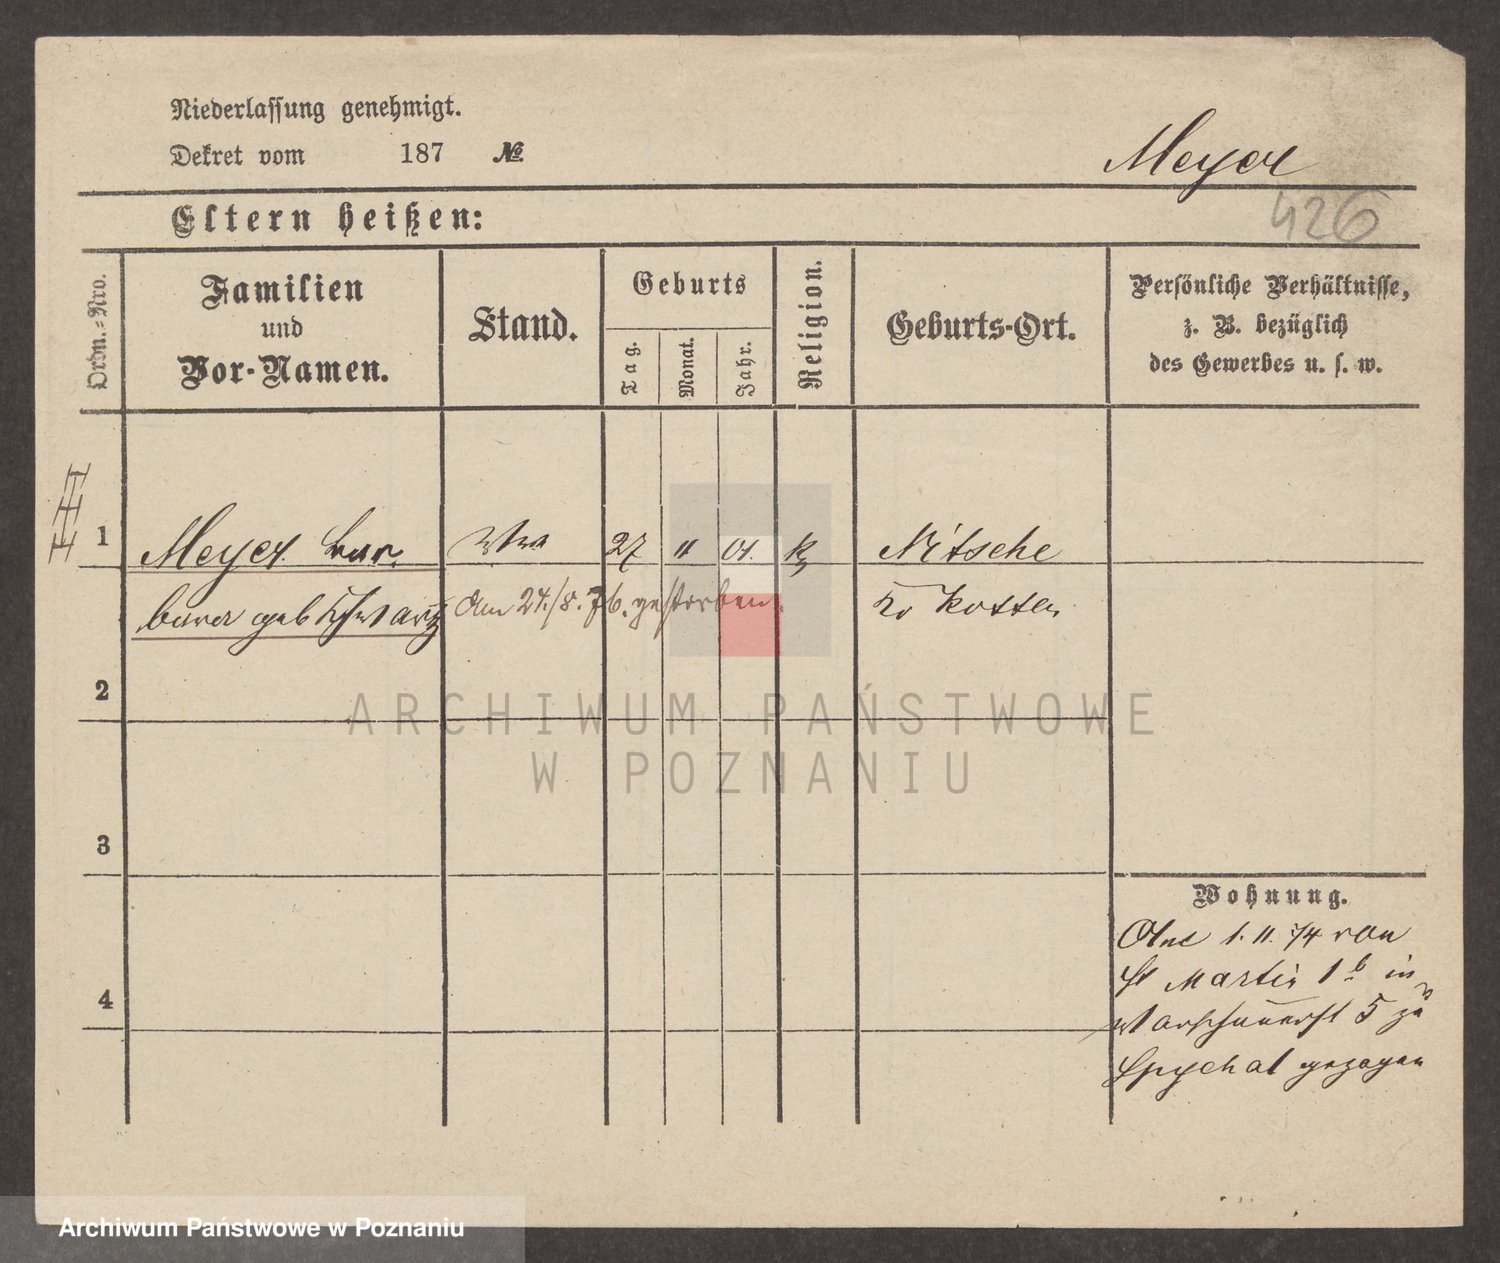 Niederlassung genehmigt.
Dekret vom 187 №
Meyer
426
Eltern heißen:
Ordn.=Nro.
Familien
und
Vor-Namen.
Stand.
Geburts
Tag.
Monat.
Jahr.
Religion.
Geburts-Ort.
Persönliche Verhältnisse,
z. B. bezüglich
des Gewerbes u. s. w.
1 Meyer Bar Wwe 27 11 01. K Nitsche
bara geb Schwartz Am 24./8.76. gestorben. Kr Kosten
2
3
4
Wohnung.
1. 11. 74 von
St Martin 1 b in
Warschauerst 5 zu
Spychal gezogen
ARCHIWUM PAŃSTWOWE
W POZNANIU
Archiwum Państwowe w Poznaniu